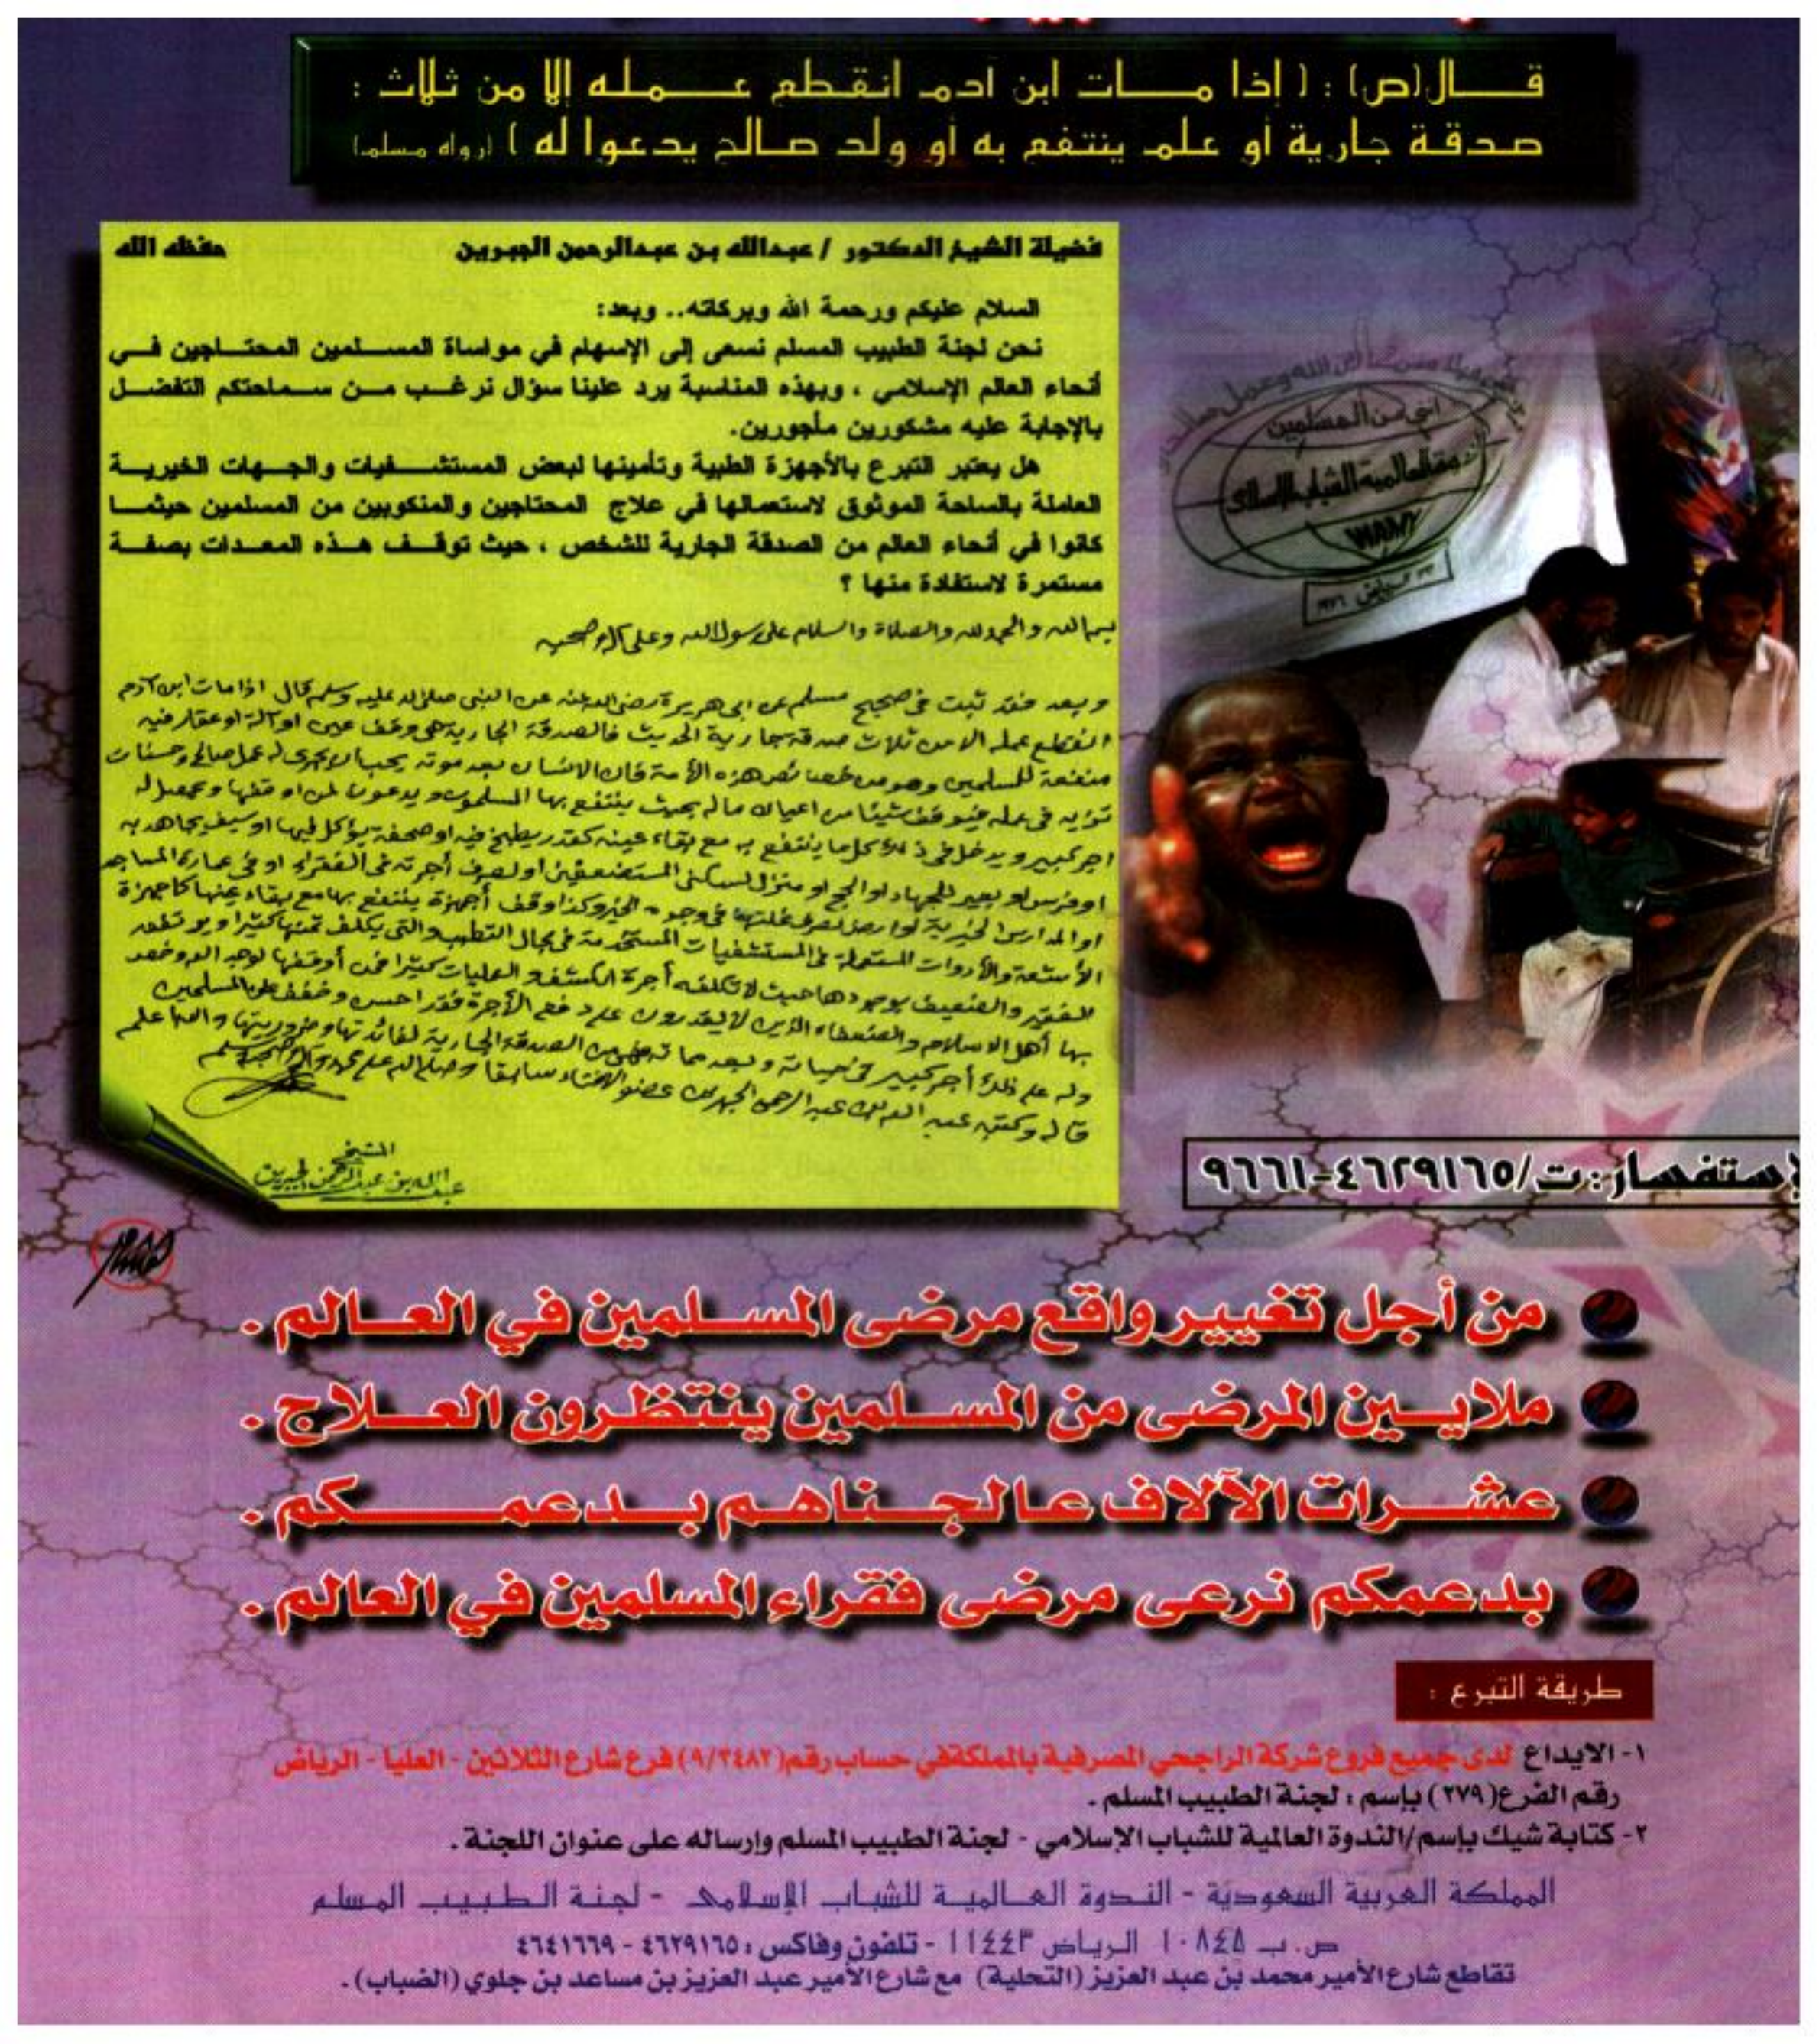 قال(ص) : ( إذا مات ابن آدم انقطع عمله إلا من ثلاث :
صدقة جارية أو علم ينتفع به أو ولد صالح يدعوا له ) (رواه مسلم)
فضيلة الشيخ الدكتور / عبدالله بن عبدالرحمن الجبرين حفظه الله
السلام عليكم ورحمة الله وبركاته.. وبعد:
نحن لجنة الطبيب المسلم نسعى إلى الإسهام في مواساة المسلمين المحتاجين في
أنحاء العالم الإسلامي ، وبهذه المناسبة يرد علينا سؤال نرغب من سماحتكم التفضل
بالإجابة عليه مشكورين مأجورين.
هل يعتبر التبرع بالأجهزة الطبية وتأمينها لبعض المستشفيات والجهات الخيرية
العاملة بالساحة الموثوق لاستعمالها في علاج المحتاجين والمنكوبين من المسلمين حيثما
كانوا في أنحاء العالم من الصدقة الجارية للشخص ، حيث توقف هذه المعدات بصفة
مستمرة لاستفادة منها ؟
بسم الله والحمد لله والصلاة والسلام على رسول الله وعلى آله وصحبه
وبعد فقد ثبت في صحيح مسلم عن ابي هريرة رضي الله عنه عن النبي صلى الله عليه وسلم قال اذا مات ابن آدم
انقطع عمله الا من ثلاث صدقة جارية الحديث فالصدقة الجارية هي وقف عين او آلة او عقار فيه
منفعة للمسلمين وهو من خصائص هذه الأمة فان الانسان بعد موته يحب ان يجري له عمل صالح وحسنات
تزيد في عمله فيوقف شيئا من اعيان ماله بحيث ينتفع بها المسلمون ويدعون لمن اوقفها ويحصل له
اجر كبير ويدخل في ذلك كل ما ينتفع به مع بقاء عينه كقدر يطبخ فيه او صحفة يؤكل فيها او سيف يجاهد به
او فرس او بعير للجهاد او الحج او منزل لسكنى المستضعفين او لصرف أجرته في الفقراء او في عمارة المساجد
او المدارس الخيرية او ارض تصرف غلتها في وجوه الخير وكذا وقف أجهزة ينتفع بها مع بقاء عينها كاجهزة
الأشعة والأدوات المستعملة في المستشفيات المستخدمة في مجال التطبيب والتي يكلف ثمنها كثيرا
الفقير والضعيف بوجودها حيث لا تكلفه أجرة الكشف والعمليات كثيرا فمن أوقفها لوجه الله وخص
بها أهل الاسلام والضعفاء الذين لا يقدرون على دفع الأجرة فقد احسن وخفف على المسلمين
وله على ذلك أجر كبير في حياته وبعد مماته فهي من الصدقة الجارية لفائدتها وضروريتها والله اعلم
قاله وكتبه عبد الله بن عبد الرحمن الجبرين عضو الافتاء سابقا وصلى الله على محمد وآله وصحبه وسلم
الشيخ
عبدالله بن عبدالرحمن الجبرين
إنني من المسلمين
الندوة العالمية للشباب الإسلامي
WAMY
لإستفسار:ت/٤٦٢٩١٦٥-٩٦٦١
من أجل تغيير واقع مرضى المسلمين في العالم .
ملايين المرضى من المسلمين ينتظرون العلاج .
عشرات الآلاف عالجناهم بدعمكم .
بدعمكم نرعى مرضى فقراء المسلمين في العالم .
طريقة التبرع :
١- الايداع لدى جميع فروع شركة الراجحي المصرفية بالمملكةفي حساب رقم(٩/٣٤٨٢) فرع شارع الثلاثين - العليا - الرياض
رقم الفرع(٢٧٩) بإسم : لجنة الطبيب المسلم .
٢- كتابة شيك بإسم/الندوة العالمية للشباب الإسلامي - لجنة الطبيب المسلم وإرساله على عنوان اللجنة .
المملكة العربية السعودية - الندوة العالمية للشباب الإسلامي - لجنة الطبيب المسلم
ص.ب ١٠٨٤٥ الرياض ١١٤٤٣ - تلفون وفاكس : ٤٦٢٩١٦٥ - ٤٦٤١٦٦٩
تقاطع شارع الأمير محمد بن عبد العزيز (التحلية) مع شارع الأمير عبد العزيز بن مساعد بن جلوي (الضباب) .